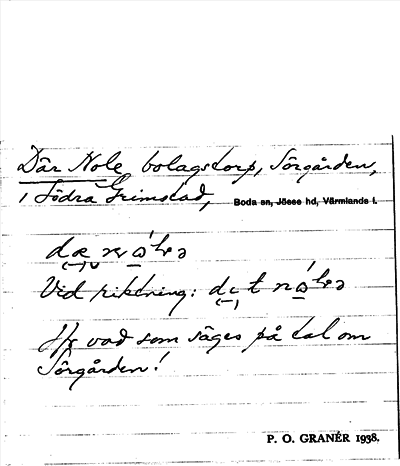 Där Nole, bolagstorp, Sörgården,
i Södra Grimstad, Boda sn, Jösse hd, Värmlands l.
Vid riktning:
Jfr vad som säges på tal om
Sörgården!
P. O. GRANÉR 1938.